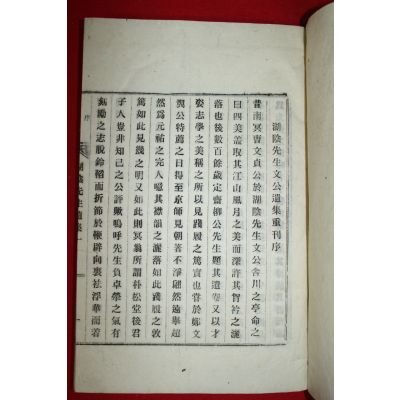 湖陰先生文公遺集重刊序
昔南冥曺文貞公於湖陰先生文公舍川之亭命之
曰四美盖取其江山風月之美而深許其胷衿之灑
落也後數百餘歲定齋柳公先生題其遺卷又以才
娄志學之美稱之所以見踐履之篤實也甞於鄭文
翼公特薦之日得至京師見朝著不淨翩然遠擧超
然爲元祐之完人噫其襟韻之灑落如此踐履之敦
篤如此見幾之明又如此則冥翁所謂朴松堂後君
子人豈非知己之公許歟嗚呼先生負卓犖之氣有
剡勵之志脫鈴韜而折節於鞭辟向裏祛浮華而着
序
湖陰先生遺集一